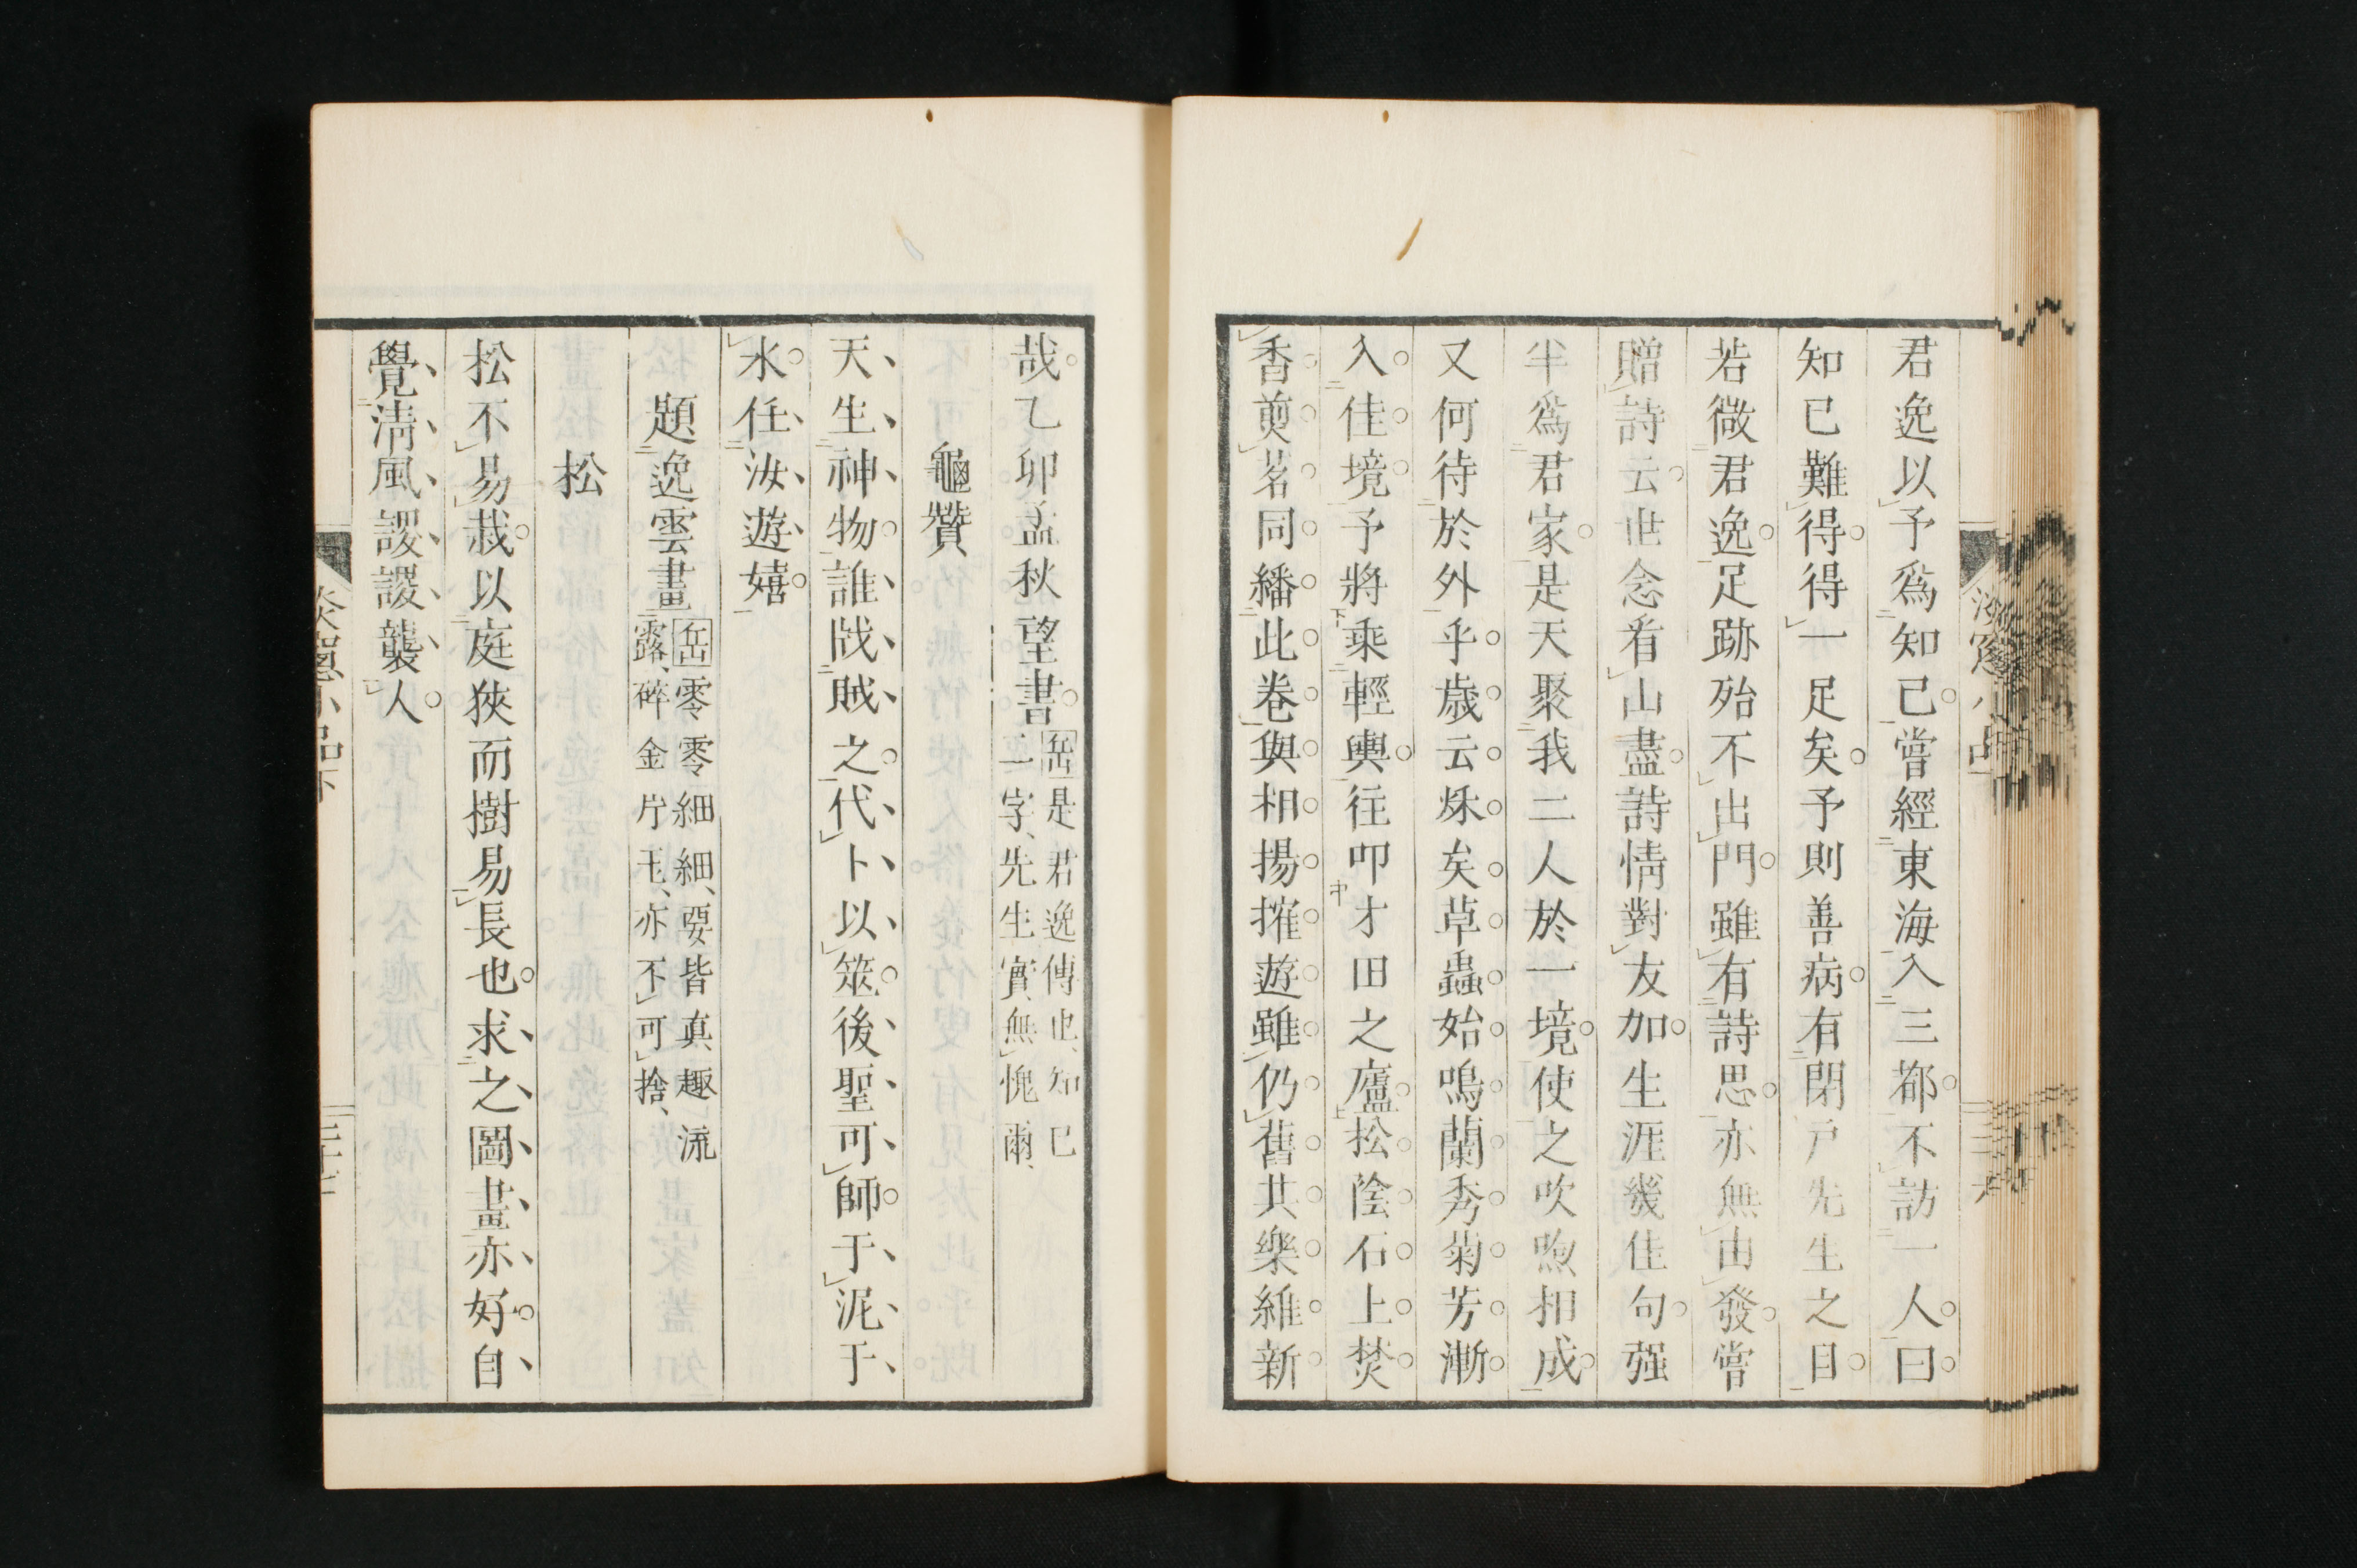 君逸以予爲知己嘗經東海入三都不訪一人曰
知已難得得一足矣予則善病有閉戸先生之目
若微君逸足跡殆不出門雖有詩思亦無由發嘗
贈詩云世念看山盡詩情對友加生涯幾佳句强
半爲君家是天聚我二人於一境使之吹煦相成
又何待於外乎歳云烁矣草蟲始鳴蘭秀菊芳漸
入佳境予將乘輕輿往叩才田之廬松陰石上焚
香煎茗同繙此卷與相揚搉遊雖仍舊其樂維新
哉乙卯孟秋望書
岳是君逸傳也、知已
二字、先生實無愧爾、
龜贊
天生神物誰戕賊之代卜以筮後聖可師于泥于
水任汝遊嬉
題逸雲畫
岳零零細細、要皆真趣流
露、碎金片玉、亦不可捨、
松
松不易栽以庭狹而樹易長也求之圖畫亦好自
覺淸風謖謖襲人